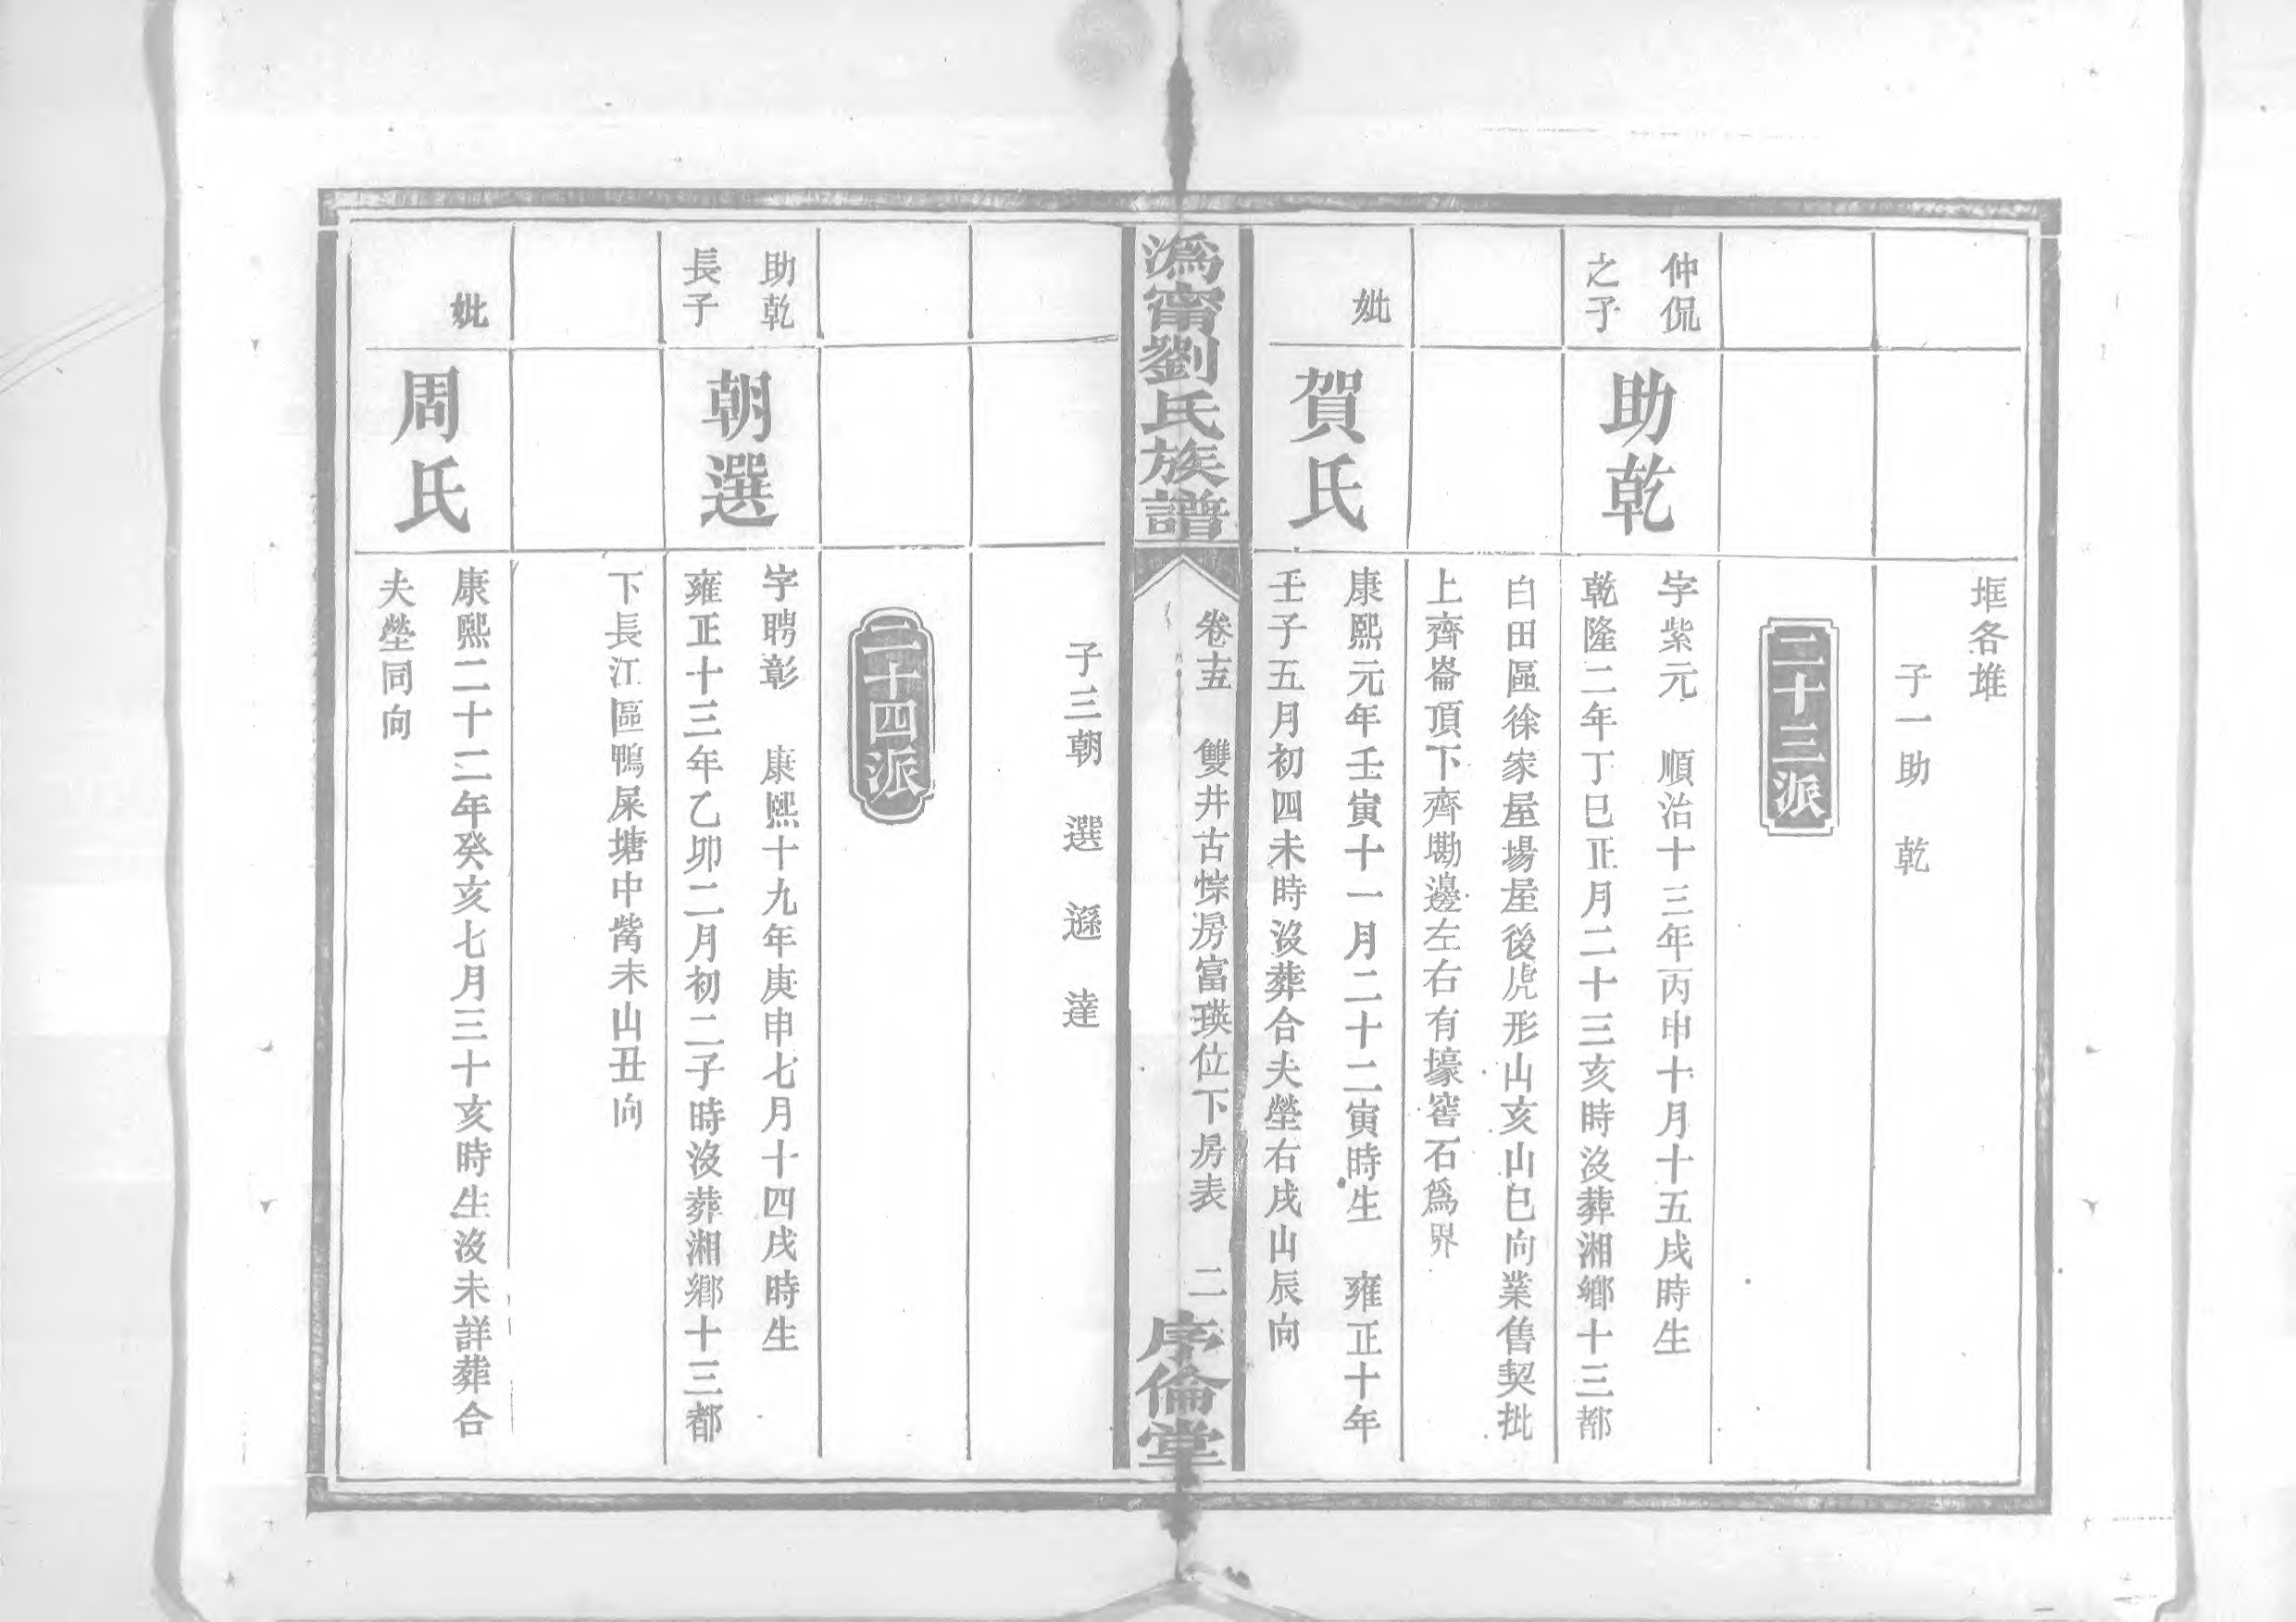 堆各堆
子一助 乾
二十三派
仲侃
之子
助乾
字紫元 順治十三年丙申十月十五戌時生
乾隆二年丁巳正月二十三亥時沒葬湘鄉十三都
白田區徐家屋場屋後虎形山亥山巳向業售契批
上齊崙頂下齊墈邊左右有壕窖石爲界
妣
賀氏
康熙元年壬寅十一月二十二寅時生 雍正十年
壬子五月初四未時沒葬合夫塋右戌山辰向
潙甯劉氏族譜
卷十五 雙井古悰房富瑛位下房表 二
序倫堂
子三朝 選 遜 達
二十四派
助乾
長子
朝選
字聘彰 康熙十九年庚申七月十四戌時生
雍正十三年乙卯二月初二子時沒葬湘鄉十三都
下長江區鴨屎塘中嘴未山丑向
妣
周氏
康熙二十二年癸亥七月三十亥時生沒未詳葬合
夫塋同向